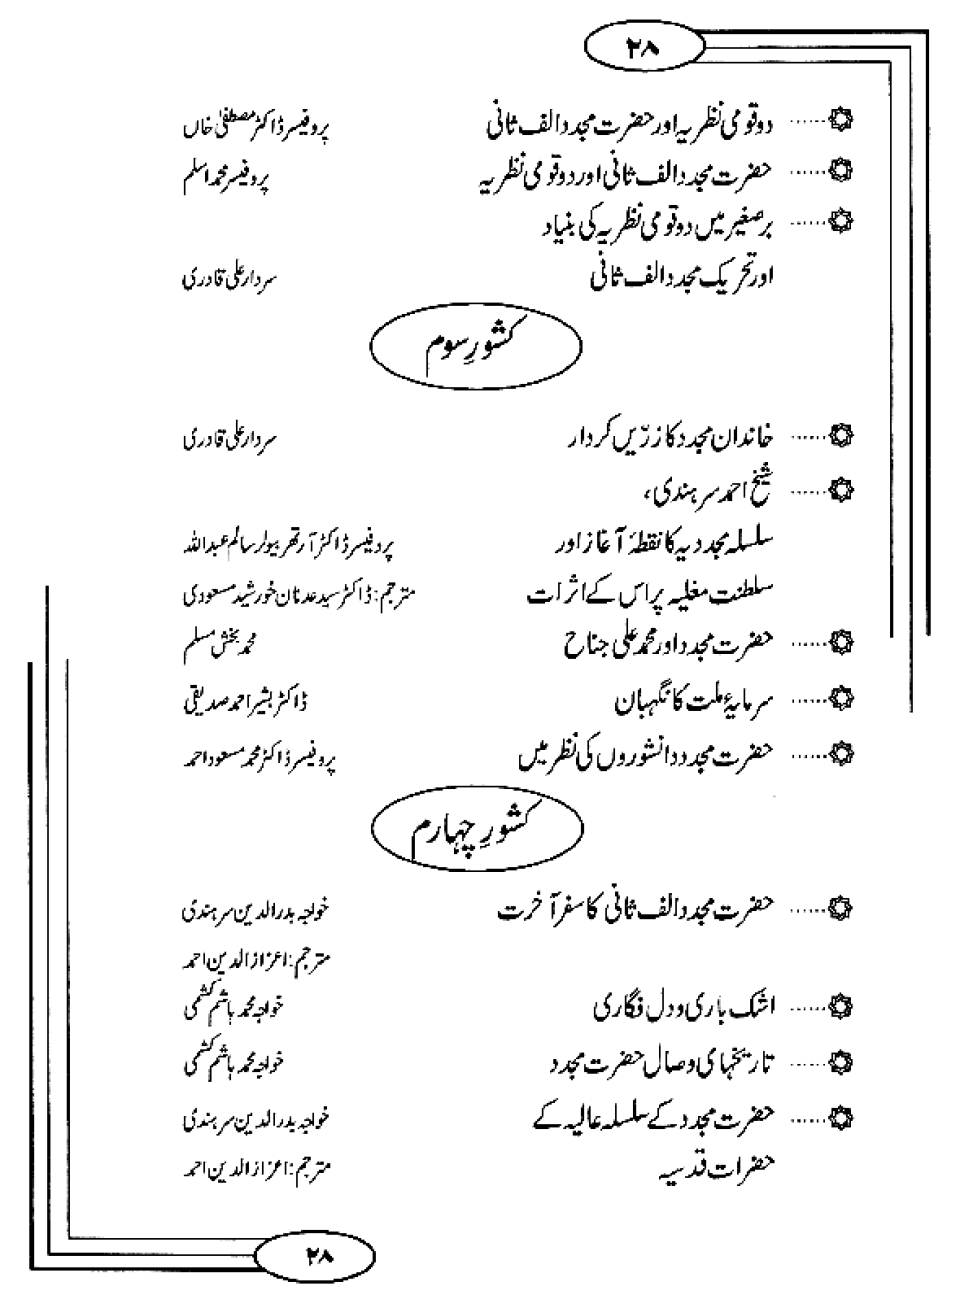 ۲۸
دو قومی نظریہ اور حضرت مجدد الف ثانی ...... پروفیسر ڈاکٹر مصطفیٰ خاں
حضرت مجدد الف ثانی اور دو قومی نظریہ ...... پروفیسر محمد اسلم
برصغیر میں دو قومی نظریہ کی بنیاد ......
اور تحریک مجدد الف ثانی سردار علی قادری
کشورِ سوم
خاندان مجدد کا زرّیں کردار ...... سردار علی قادری
شیخ احمد سرہندی، ......
سلسلہ مجددیہ کا نقطۂ آغاز اور پروفیسر ڈاکٹر آرتھر بیولر سالم عبداللہ
سلطنت مغلیہ پر اس کے اثرات مترجم: ڈاکٹر سید عدنان خورشید مسعودی
حضرت مجدد اور محمد علی جناح ...... محمد بخش مسلم
سرمایۂ ملت کا نگہبان ...... ڈاکٹر بشیر احمد صدیقی
حضرت مجدد دانشوروں کی نظر میں ...... پروفیسر ڈاکٹر محمد مسعود احمد
کشورِ چہارم
حضرت مجدد الف ثانی کا سفر آخرت ...... خواجہ بدر الدین سرہندی
مترجم: اعزاز الدین احمد
اشک باری و دل فگاری ...... خواجہ محمد ہاشم کشمی
تاریخہای وصال حضرت مجدد ...... خواجہ محمد ہاشم کشمی
حضرت مجدد کے سلسلہ عالیہ کے ...... خواجہ بدر الدین سرہندی
حضرات قدسیہ مترجم: اعزاز الدین احمد
۲۸